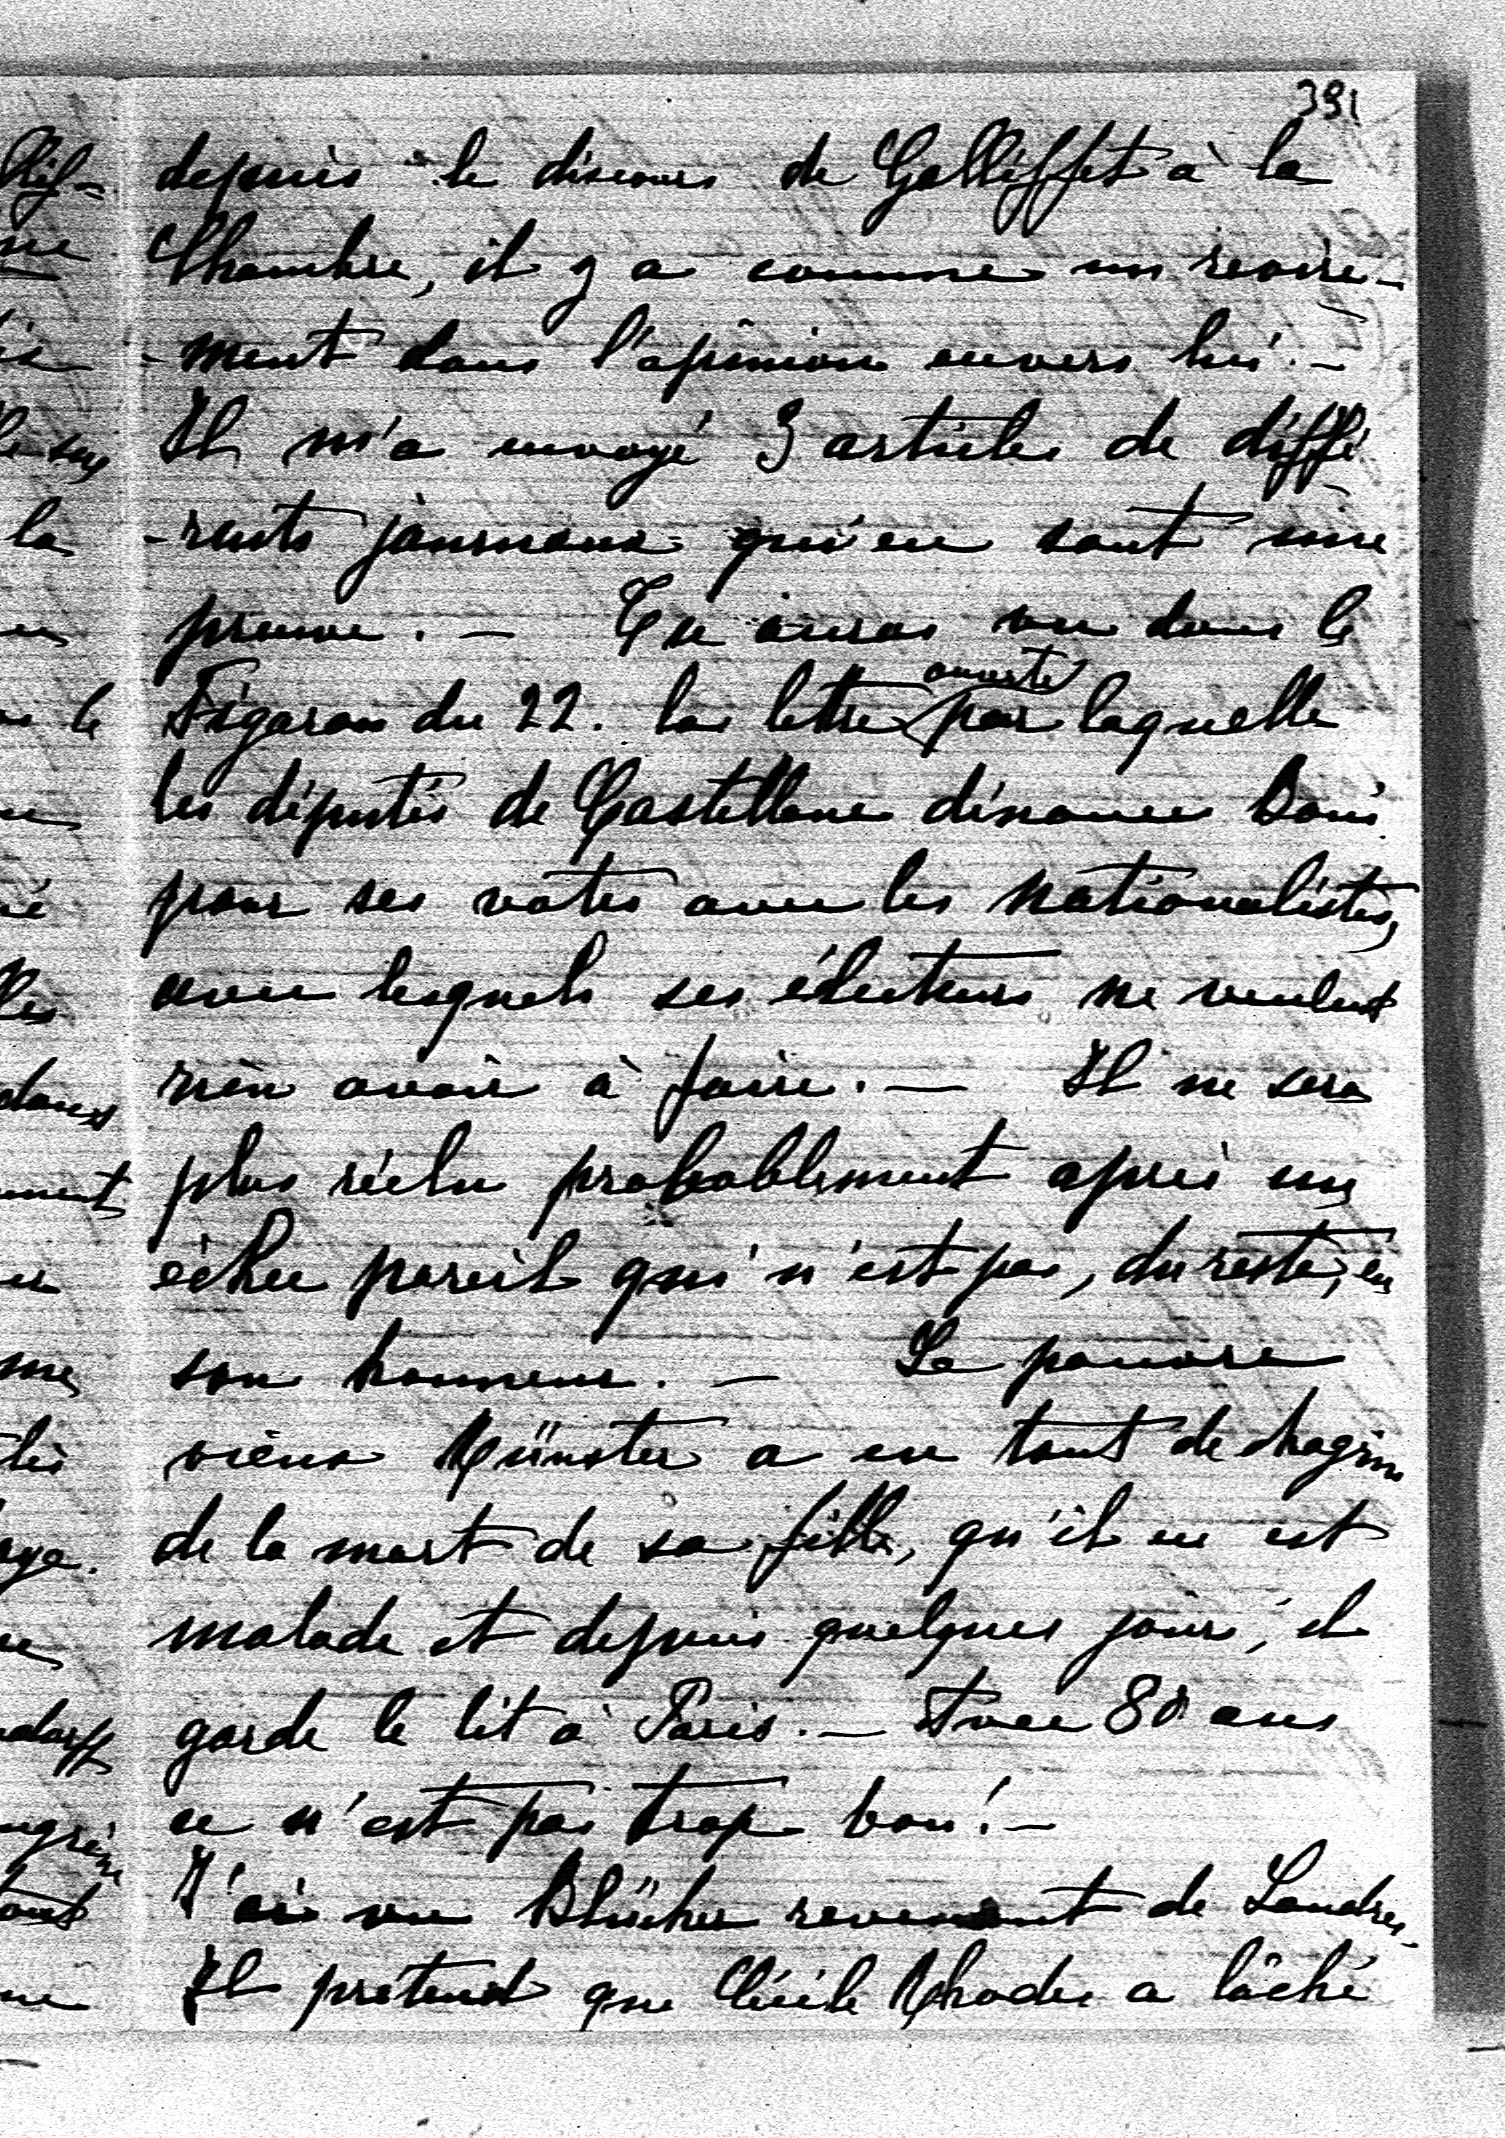 391
depuis le discours de Galliffet à la
Chambre, il y a comme un revire-
-ment dans l'opinion envers lui. -
Il m'a envoyé 3 articles de diffé
-rents journaux qui en sont une
preuve. - Tu auras vu dans le
Figaro du 22. la lettre ouverte par laquelle
les députés de Castellane dénonce Boni
pour ses votes avec les nationalistes,
avec lesquels ses électeurs ne veulent
rien avoir à faire. - Il ne sera
plus réélu probablement après un
échec pareil qui n'est pas, du reste, en
son honneur. - Le pauvre
vieux Münster a eu tant de chagrin
de la mort de sa fille, qu'il en est
malade et depuis quelques jours, il
garde le lit à Paris. - Avec 80 ans
ce n'est pas trop bon! -
J'ai vu Blücher revenant de Londres -
Il prétend que Cécile Rhodes a lâché